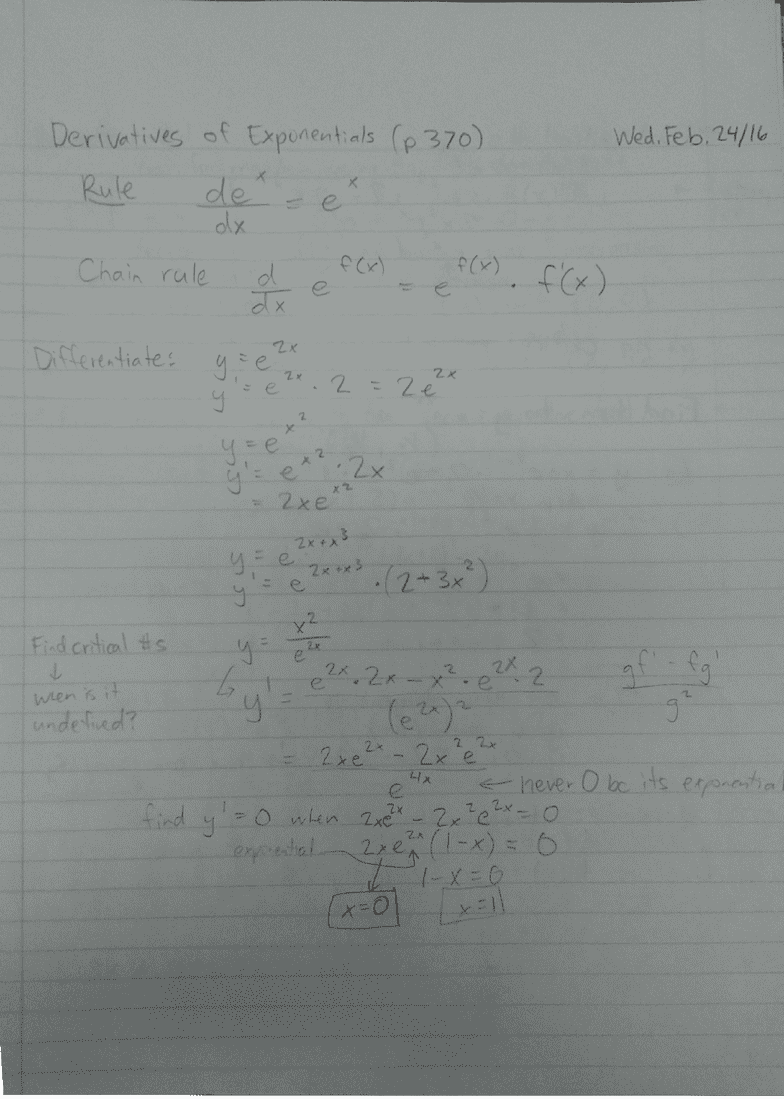 Derivatives of Exponentials (p 370) Wed. Feb. 24/16
Rule de^x/dx = e^x
Chain rule d/dx e^f(x) = e^f(x) · f'(x)
Differentiate: y = e^2x
y' = e^2x · 2 = 2e^2x
y = e^x^2
y' = e^x^2 · 2x
= 2xe^x^2
y = e^2x+x^3
y' = e^2x+x^3 · (2+3x^2)
Find critical #s y = x^2/e^2x
↓
when is it
undefined?
↳ y' = e^2x · 2x - x^2 · e^2x · 2/(e^2x)^2 gf' - fg'/g^2
= 2xe^2x - 2x^2e^2x/e^4x ← never 0 bc its exponential
find y' = 0 when 2xe^2x - 2x^2e^2x = 0
exponential 2xe^2x (1-x) = 0
1-x=0
x=0 x=1